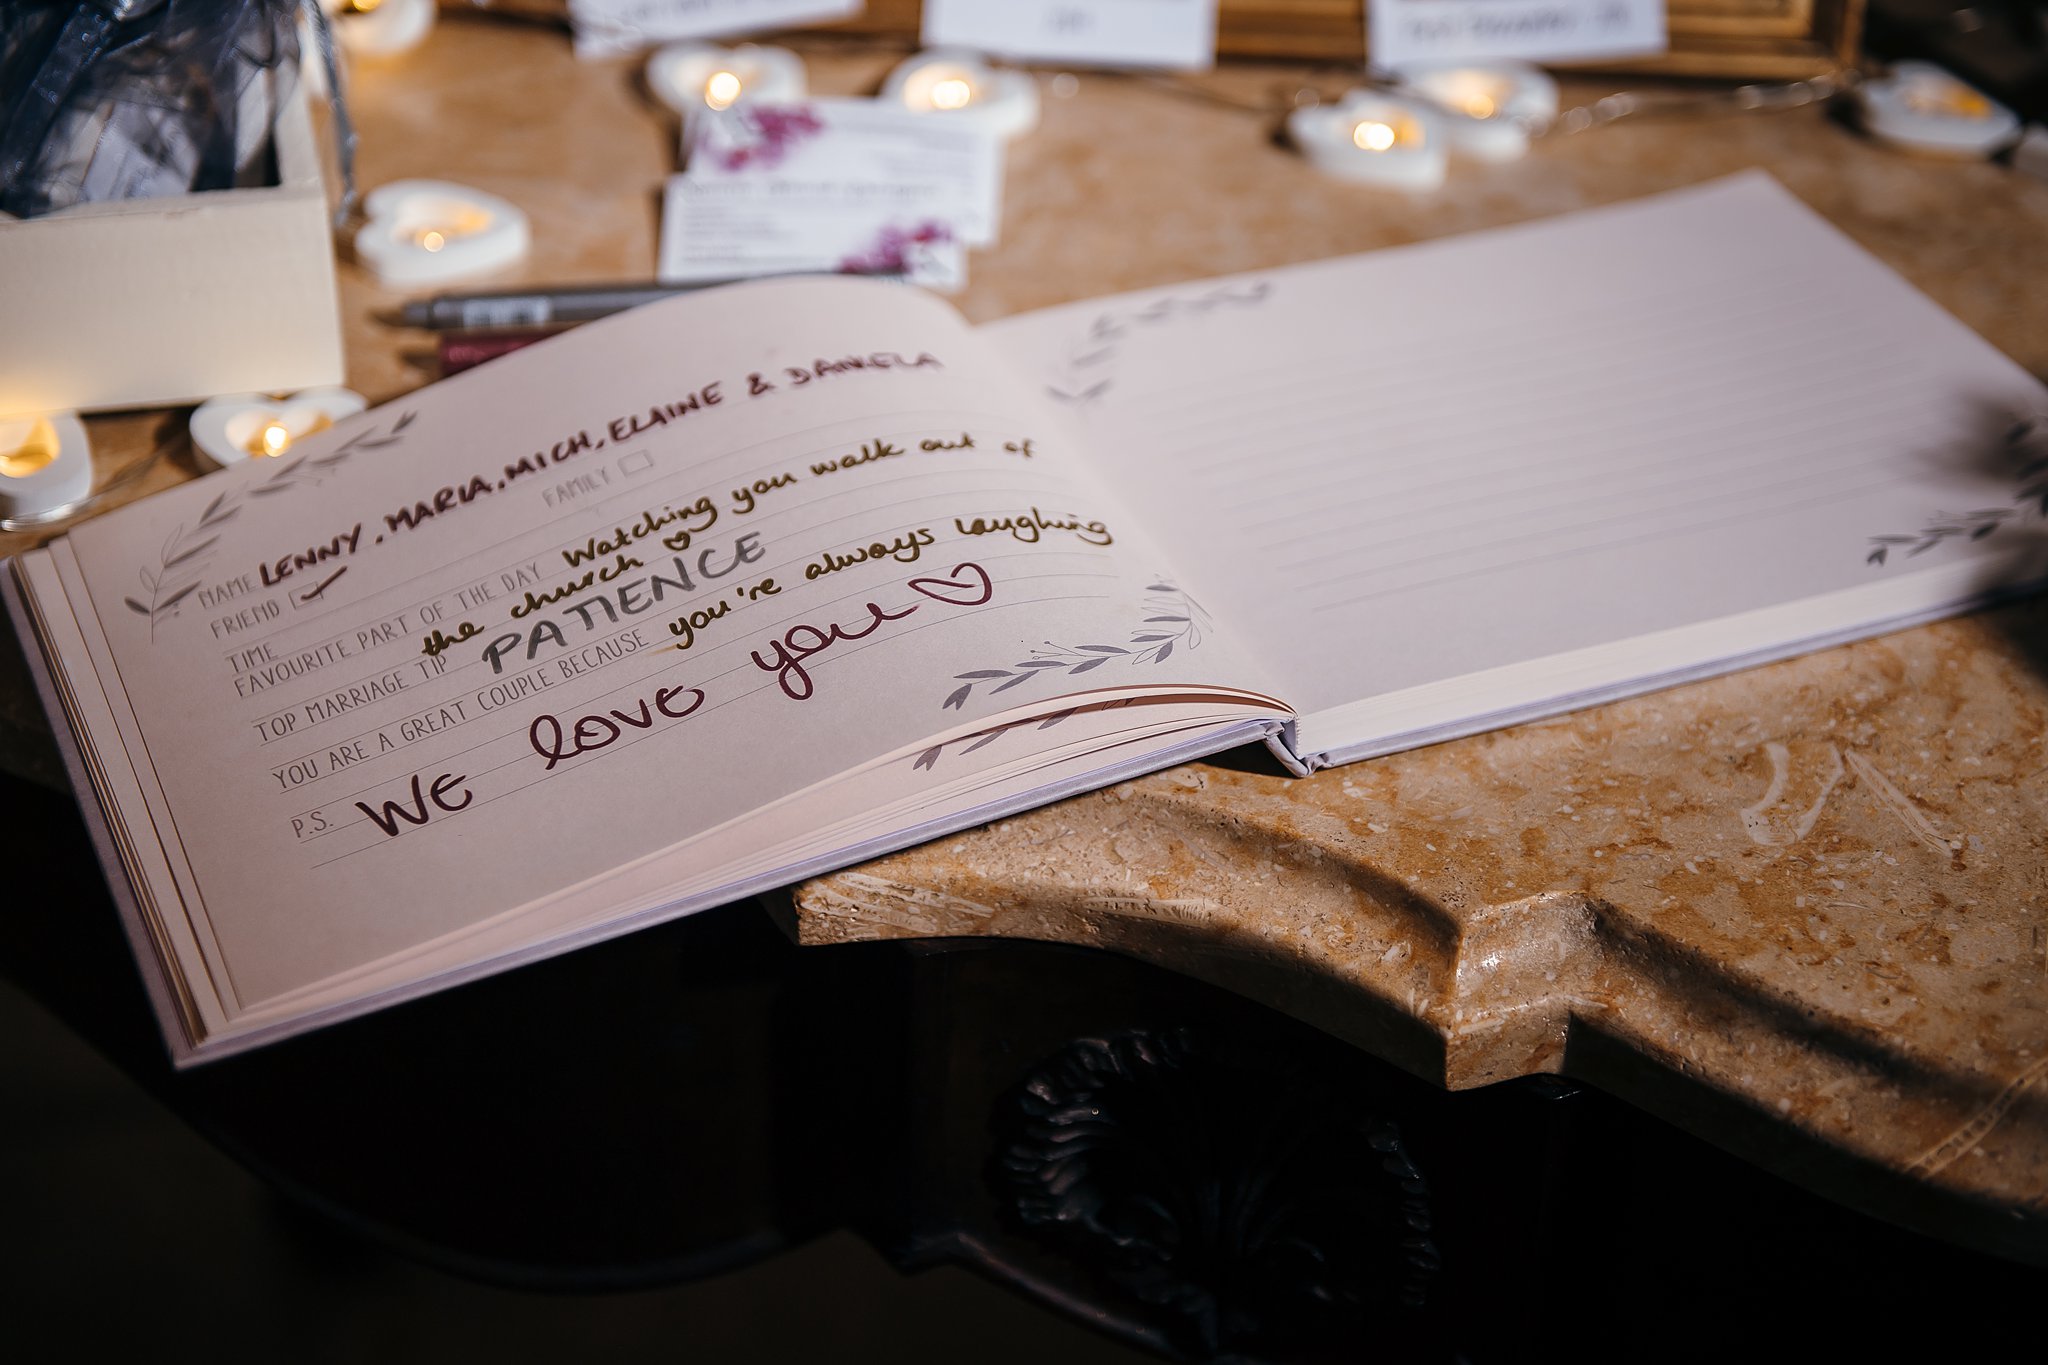 NAME LENNY, MARIA, MICH, ELAINE & DANIELA
FRIEND FAMILY
TIME
FAVOURITE PART OF THE DAY Watching you walk out of
the church
TOP MARRIAGE TIP PATIENCE
YOU ARE A GREAT COUPLE BECAUSE you're always laughing
P.S. WE love you